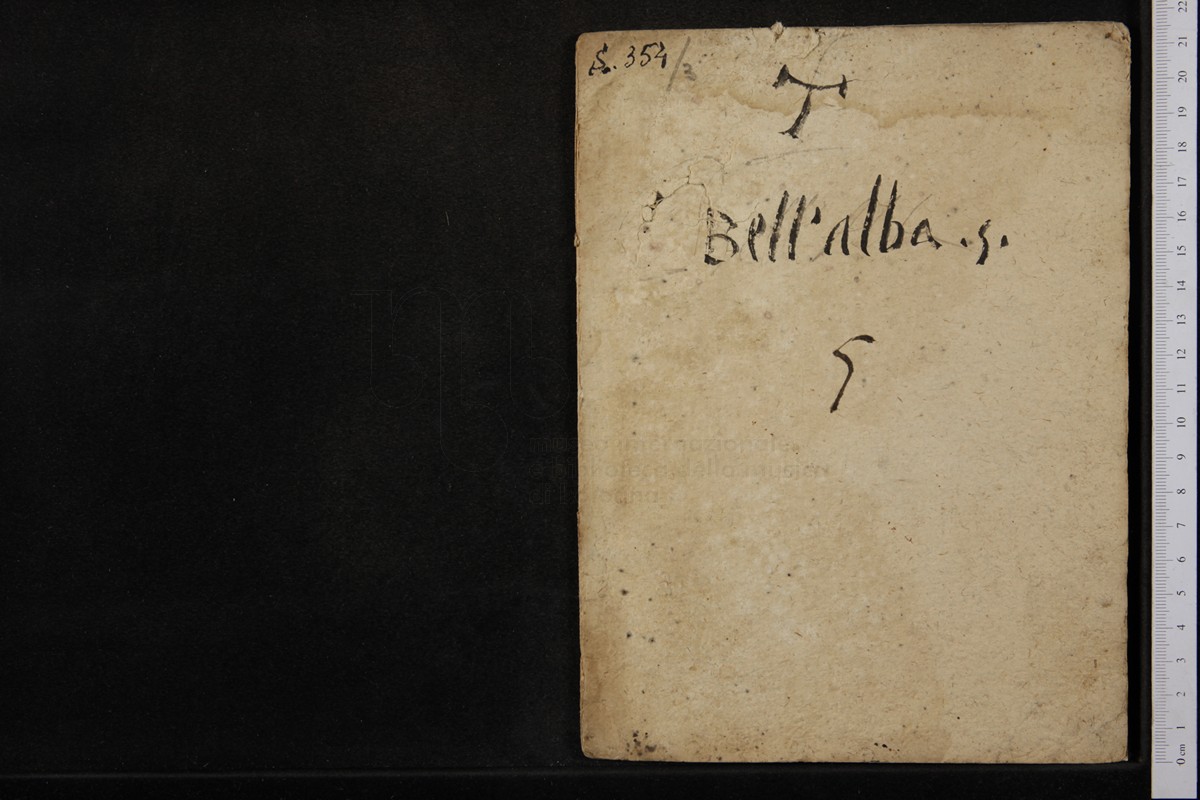 S. 354/3
T
Bell'alba .5.
5
0 cm 1 2 3 4 5 6 7 8 9 10 11 12 13 14 15 16 17 18 19 20 21 22